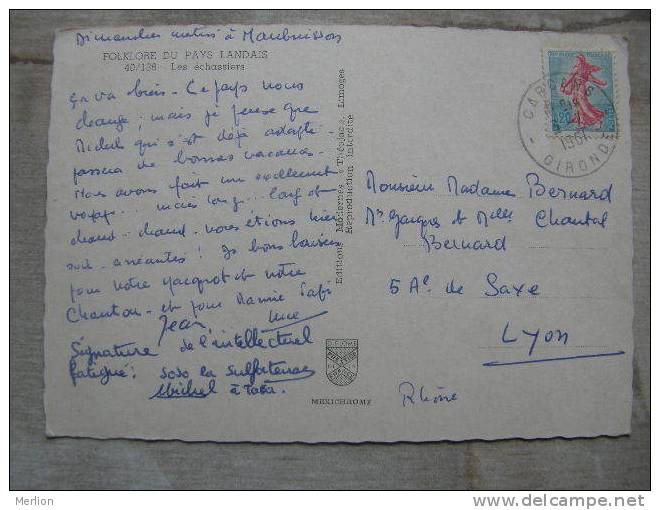 Dimanche matin à Maubuisson
FOLKLORE DU PAYS LANDAIS
40/138 - Les échassiers
Ça va bien - Ce pays nous
change, mais je pense que
Michel qui s'est déjà adapté
passera de bonnes vacances -
Nous avons fait un excellent
voyage... mais long... long et
chaud - chaud - nous étions hier
soir - anéantis! Gs bons baisers
pour votre et notre
Chantou - et pour Mamie
Jean Luce
Signature de l'intellectuel
fatigué: soso la
Michel à tata.
Editions Modernes « Théojac », Limoges
Reproduction interdite
MEXICHROME
CARCANS
1961
GIRONDE
Monsieur Madame Bernard
Mr Georges et Melle Chantal
Bernard
5 Ae. de Saxe
Lyon
Rhône
Merlion
www.delcampe.net